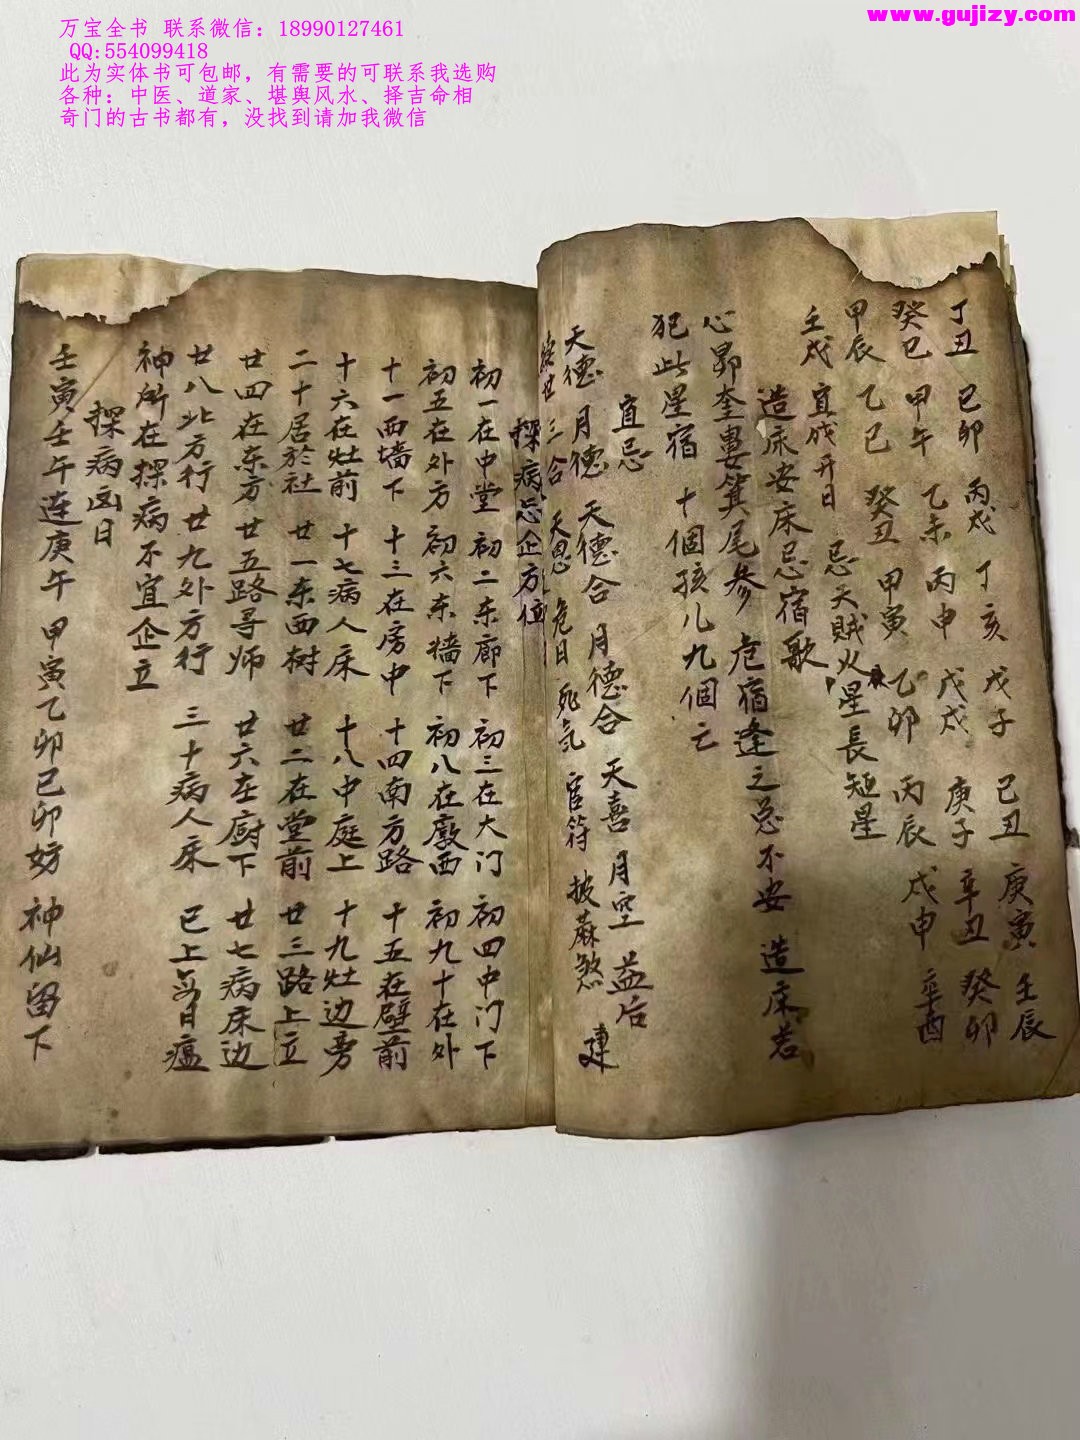 www.gujizy.com
万宝全书 联系微信：18990127461
QQ:554099418
此为实体书可包邮，有需要的可联系我选购
各种：中医、道家、堪舆风水、择吉命相
奇门的古书都有，没找到请加我微信
丁丑 己卯 丙戌 丁亥 戊子 己丑 庚寅 壬辰
癸巳 甲午 乙未 丙申 戊戌 庚子 辛丑 癸卯
甲辰 乙巳 癸丑 甲寅 乙卯 丙辰 戊申 辛酉
壬戌 宜成开日 忌天贼火星長短星
造床安床忌宿歌
心昴奎婁箕尾參 危宿逢之总不安 造床若
犯此星宿 十個孩儿九個亡
宜忌
天德 月德 天德合 月德合 天喜 月空 益后
三合 天恩 危日 死气 官符 披蔴煞 建
探病忌企方位
初一在中堂 初二东廊下 初三在大门 初四中门下
初五在外方 初六东墙下 初八在廒西 初九十在外
十一西墙下 十三在房中 十四南方路 十五在壁前
十六在灶前 十七病人床 十八中庭上 十九灶边旁
二十居於社 廿一东西树 廿二在堂前 廿三路上立
廿四在东方 廿五路寻师 廿六在厨下 廿七病床边
廿八北方行 廿九外方行 三十病人床 已上每日瘟
神所在探病不宜企立
探病凶日
壬寅壬午连庚午 甲寅乙卯己卯妨 神仙留下